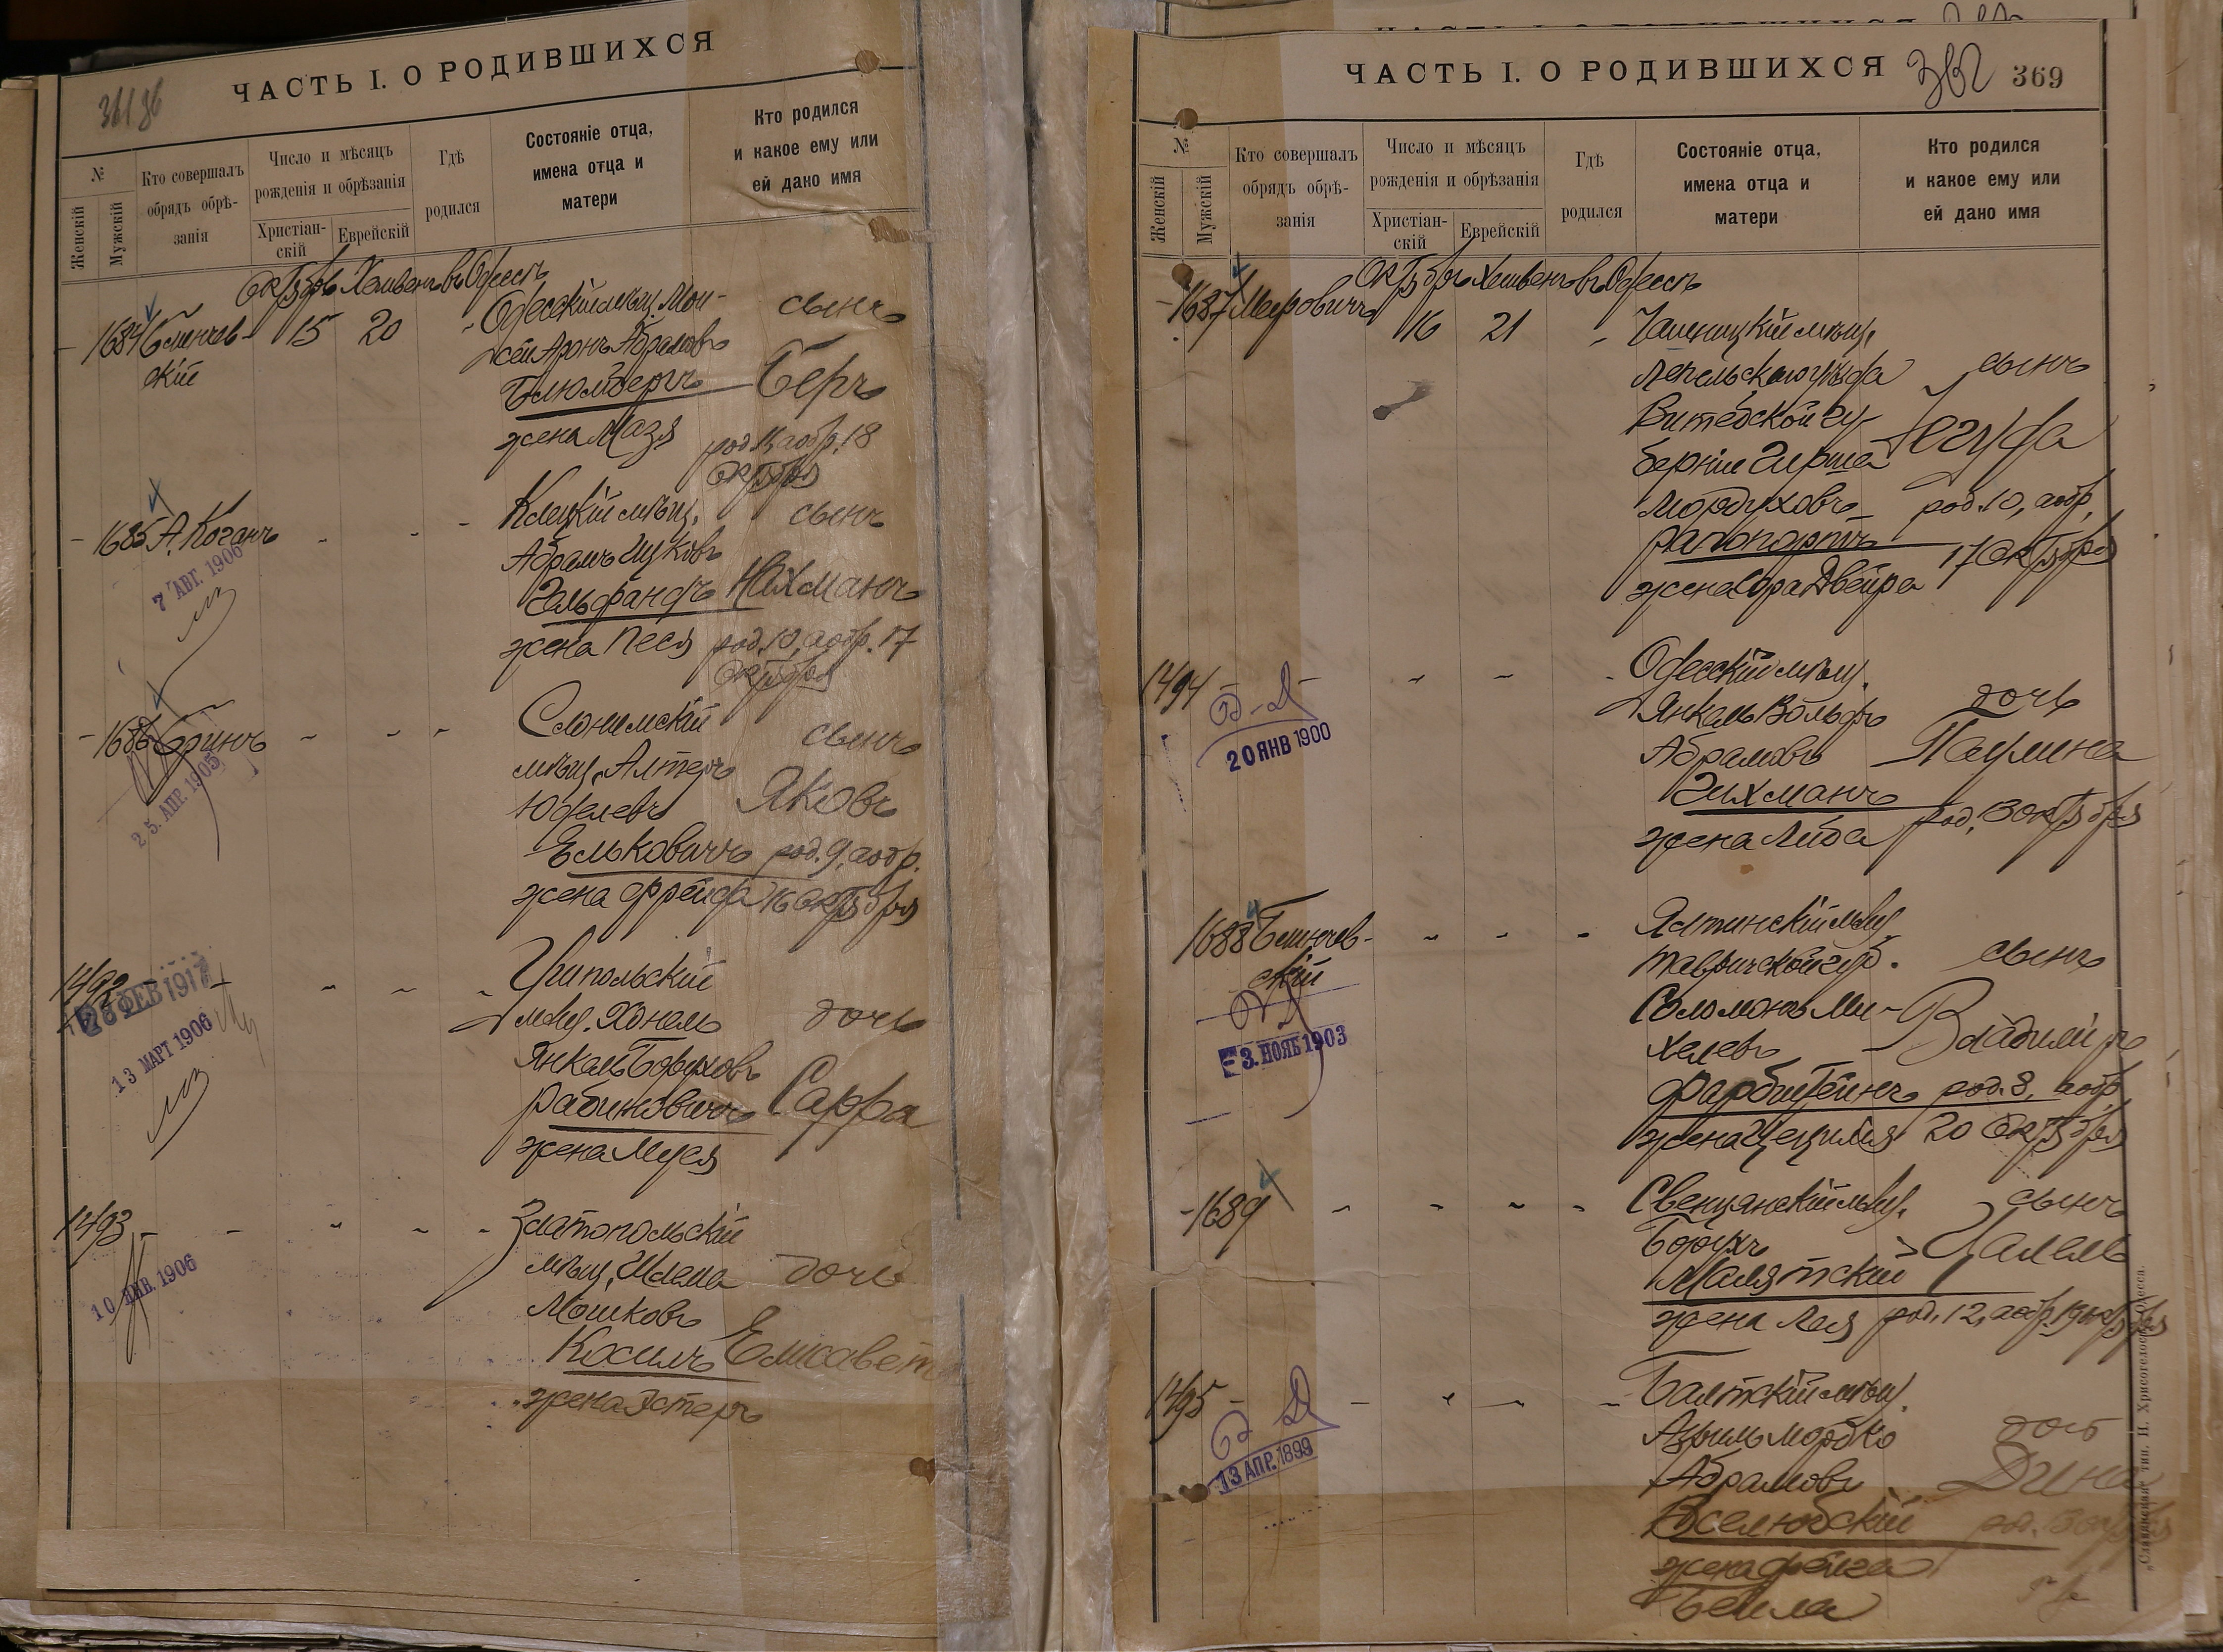 ЧАСТЬ I. О РОДИВШИХСЯ
№
Женскій
Мужскій
Кто совершалъ
обрядъ обрѣ-
занія
Число и мѣсяцъ
рожденія и обрѣзанія
Христіан-
скій
Еврейскій
Гдѣ
родился
Состояніе отца,
имена отца и
матери
Кто родился
и какое ему или
ей дано имя
Октябрь Хешвенъ въ Одессѣ
1684 Блинчев-
скій
15 20
Одесскій мѣщ. Мои-
сей Аронъ Абрамовъ
Блюмбергъ
жена Мазя
сынъ
Беръ
род. 11, аобр. 18
октября
1685 А. Коганъ
7 АВГ. 1906
Клецкій мѣщ.
Абрамъ Ицковъ
Гельфандъ
жена Песя
сынъ
Нахманъ
род. 10, аобр. 17
октября
1686 Бринъ
25. АПР. 1905
Слонимскій
мѣщ. Алтеръ
Юделевъ
Ельковичъ
жена Фрейда
сынъ
Яковъ
род. 9, аобр.
16 октября
1492
28 ФЕВ 1917
13 МАРТ 1906
мѣщ. Хонель
Янкель Боруховъ
Рабиновичъ
жена Муся
дочь
Сарра
1493
10 ЯНВ. 1906
Златопольскій
мѣщ. Шлема
Мошковъ
Косилъ
жена Эстеръ
дочь
Елисавет
ЧАСТЬ I. О РОДИВШИХСЯ
362
369
№
Женскій
Мужскій
Кто совершалъ
обрядъ обрѣ-
занія
Число и мѣсяцъ
рожденія и обрѣзанія
Христіан-
скій
Еврейскій
Гдѣ
родился
Состояніе отца,
имена отца и
матери
Кто родился
и какое ему или
ей дано имя
Октябрь Хешвенъ въ Одессѣ
1687 Меировичъ
16 21
Чашницкій мѣщ.
Лепельскаго уѣзда
Витебской гу-
берніи Гирша
Мордуховъ
Рапопортъ
жена Сора Двейра
сынъ
Іегуда
род. 10, аобр.
17 октября
1494
20 ЯНВ 1900
Одесскій мѣщ.
Янкель Вольфъ
Абрамовъ
Гихманъ
жена Либа
дочь
Паулина
род. 13 октября
1688 Блинчев-
скій
3. НОЯБ 1903
Ялтинскій мѣщ.
Таврической губ.
Соломонъ Ми-
хелевъ
Фарбштейнъ
жена Цецилія
сынъ
Владиміръ
род. 8, аобр.
20 октября
1689
Свенцянскій мѣщ.
Борухъ
Малятскій
жена Лея
сынъ
Цалель
род. 12, аобр. 19 октября
1495
13 АПР. 1899
Балтскій мѣщ.
Азриль Мордко
Абрамовъ
Вселюбскій
жена Фейга
Бейла
дочь
Дина
род. 13 октября
„Славянская" тип. Н. Хрисогелосъ, Одесса.